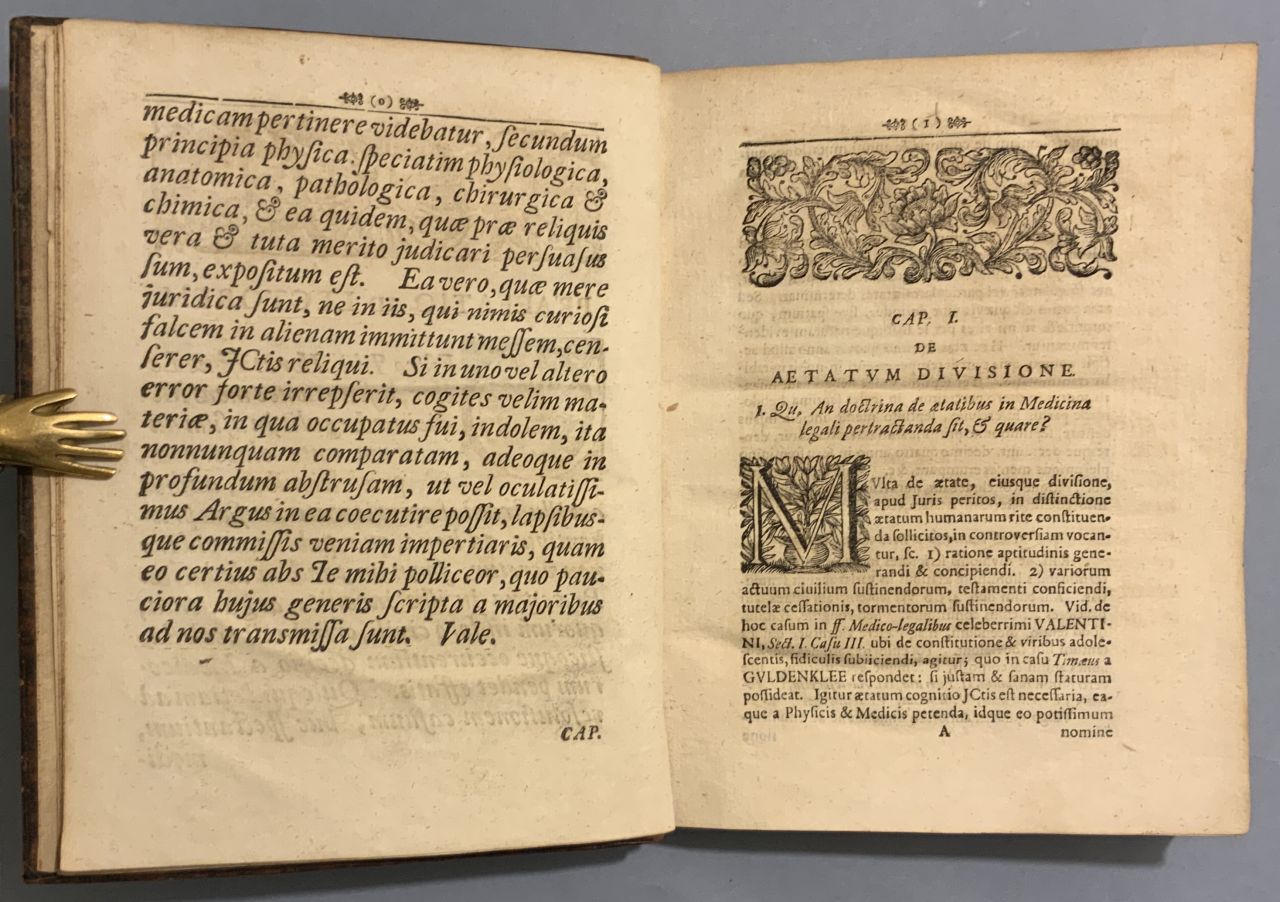 (0)
medicam pertinere videbatur, ſecundum
principia phyſica. ſpeciatim phyſiologica,
anatomica, pathologica, chirurgica &
chimica, & ea quidem, quæ præ reliquis
vera & tuta merito judicari perſuaſus
ſum, expoſitum eſt. Ea vero, quæ mere
juridica ſunt, ne in iis, qui nimis curioſi
falcem in alienam immittunt meſſem, cen-
ſerer, JCtis reliqui. Si in uno vel altero
error forte irrepſerit, cogites velim ma-
teriæ, in qua occupatus fui, indolem, ita
nonnunquam comparatam, adeoque in
profundum abſtruſam, ut vel oculatiſſi-
mus Argus in ea coecutire poſſit, lapſibus-
que commiſſis veniam impertiaris, quam
eo certius abs Te mihi polliceor, quo pau-
ciora hujus generis ſcripta a majoribus
ad nos transmiſſa ſunt. Vale.
CAP.
(1)
CAP. I.
DE
AETATVM DIVISIONE.
1. Qu. An doctrina de ætatibus in Medicina
legali pertractanda ſit, & quare?
MVlta de ætate, eiusque diviſione,
apud Juris peritos, in diſtinctione
ætatum humanarum rite conſtituen-
da ſollicitos, in controverſiam vocan-
tur, ſc. 1) ratione aptitudinis gene-
randi & concipiendi. 2) variorum
actuum ciuilium ſuſtinendorum, teſtamenti conficiendi,
tutelæ ceſſationis, tormentorum ſuſtinendorum. Vid. de
hoc caſum in ff. Medico-legalibus celeberrimi VALENTI-
NI, Sect. I. Caſu III. ubi de conſtitutione & viribus adole-
ſcentis, fidiculis ſubiiciendi, agitur; quo in caſu Timæus a
GVLDENKLEE reſpondet: ſi juſtam & ſanam ſtaturam
poſſideat. Igitur ætatum cognitio JCtis eſt neceſſaria, ea-
que a Phyſicis & Medicis petenda, idque eo potiſſimum
A nomine